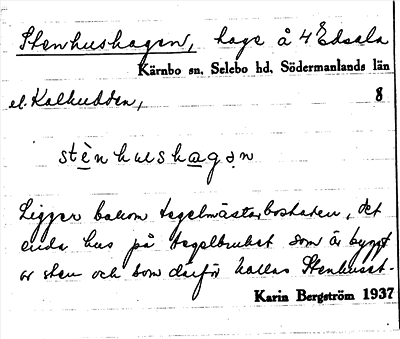 Stenhushagen, hage å 4 Edsala
Kärnbo sn, Selebo hd, Södermanlands län
el. Kalkudden, 8
stè̱nhusha̱gɘn
Ligger bakom tegelmästarbostaden, det
enda hus på tegelbruket som är byggt
av sten och som därför kallas Stenhuset.
Karin Bergström 1937